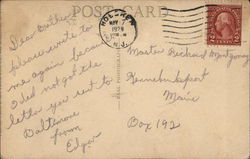 POST CARD
HOLMDEL
NOV
1928
N.J.
Dear
please write to
me again because
I did not get the
letter you sent to
Baltimore
from
Edgar
Master Richard Montgomery
Kennebunkport
Maine
Box 192